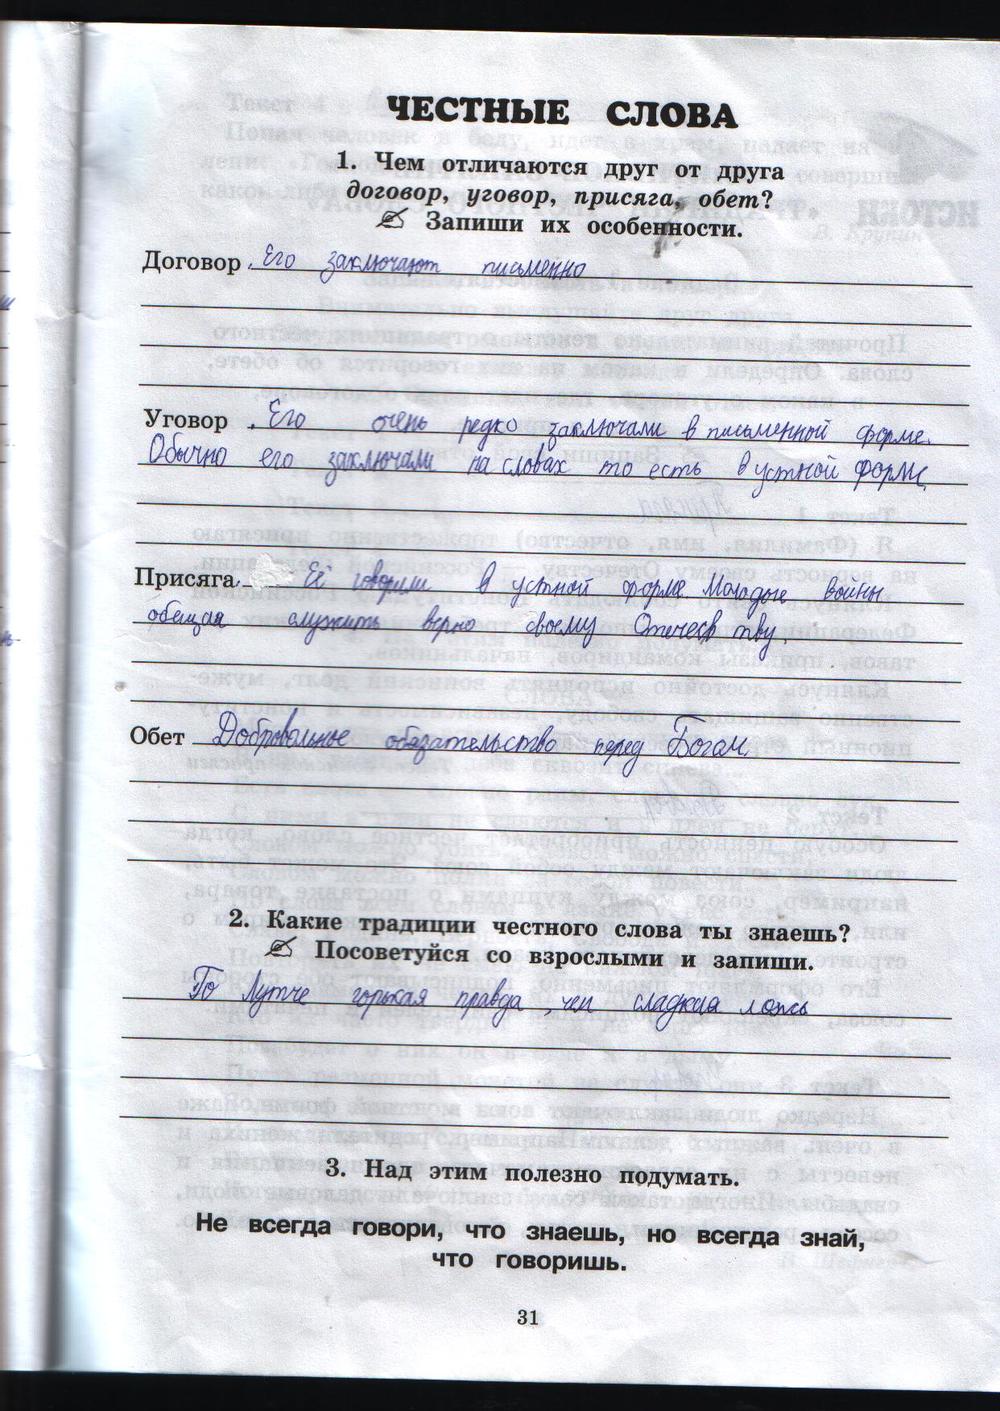 ЧЕСТНЫЕ СЛОВА
1. Чем отличаются друг от друга
договор, уговор, присяга, обет?
✍ Запиши их особенности.
Договор Его заключают письменно
Уговор Его очень редко заключали в письменной форме.
Обычно его заключали на словах то есть в устной форме
Присяга Её говорили в устной форме. Молодые воины
обещая служить верно своему Отечеству.
Обет Добровольное обязательство перед Богом.
2. Какие традиции честного слова ты знаешь?
✍ Посоветуйся со взрослыми и запиши.
горькая правда, чем сладкая ложь
3. Над этим полезно подумать.
Не всегда говори, что знаешь, но всегда знай,
что говоришь.
31